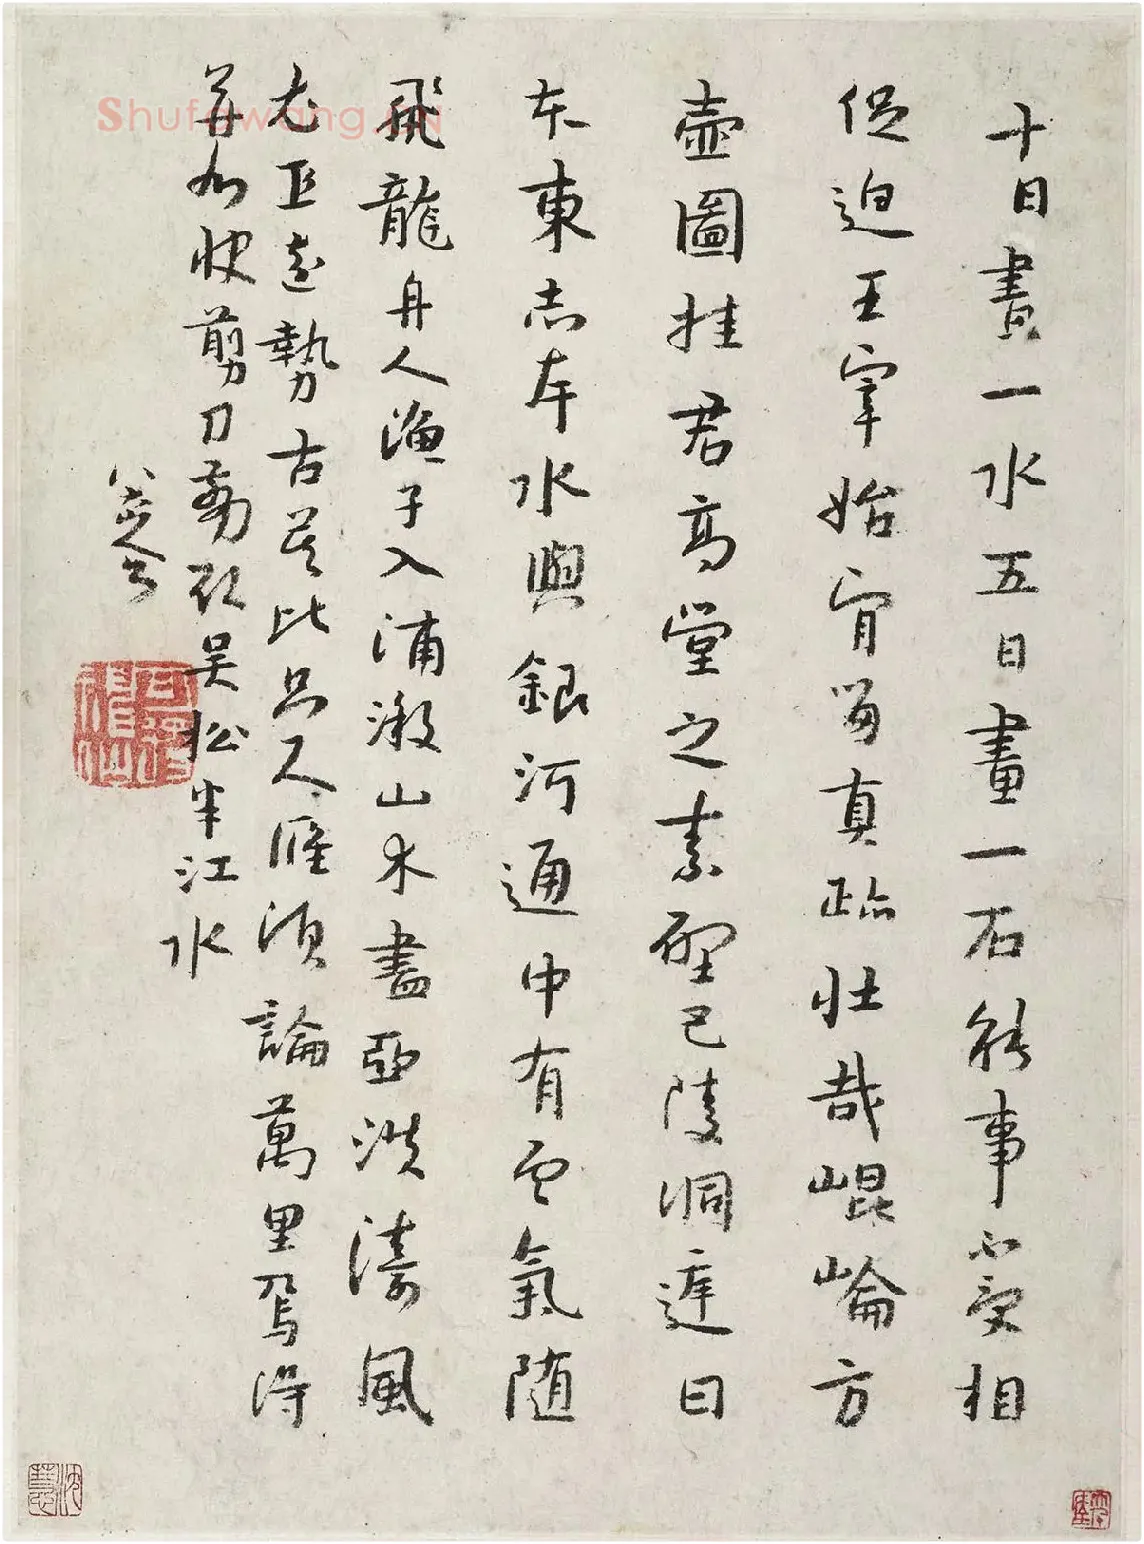 十日畫一水五日畫一石能事不受相
促迫王宰始肯留真跡壯哉崐崘方
壺圖挂君高堂之素壁巴陵洞庭日
本東赤岸水與銀河通中有雲氣隨
飛龍舟人漁子入浦漵山木盡亞洪濤風
尤工遠勢古莫比咫尺應須論萬里焉得
并州快剪刀剪取吳松半江水
八大山人
可得神仙
Shufawang.CN